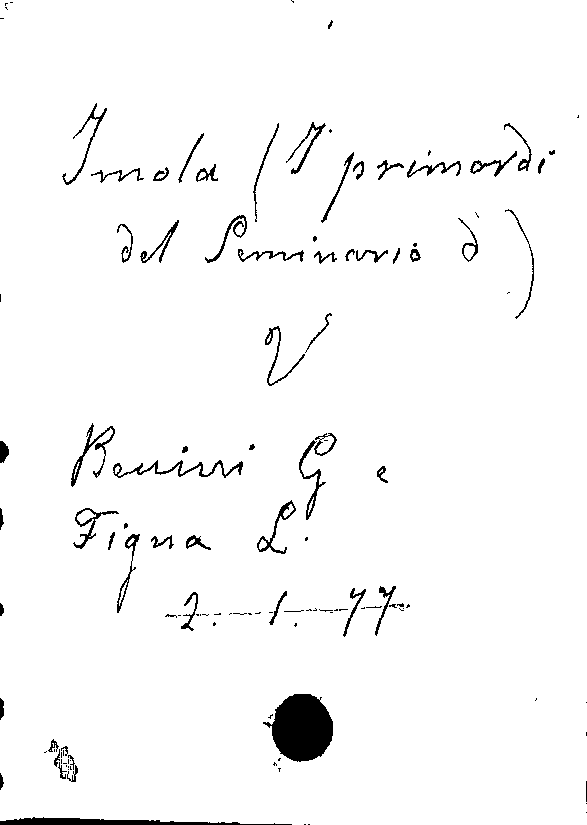 Imola (I primordi
del Seminario d')
V
Benini G e
Figna L.
2. 1. 77